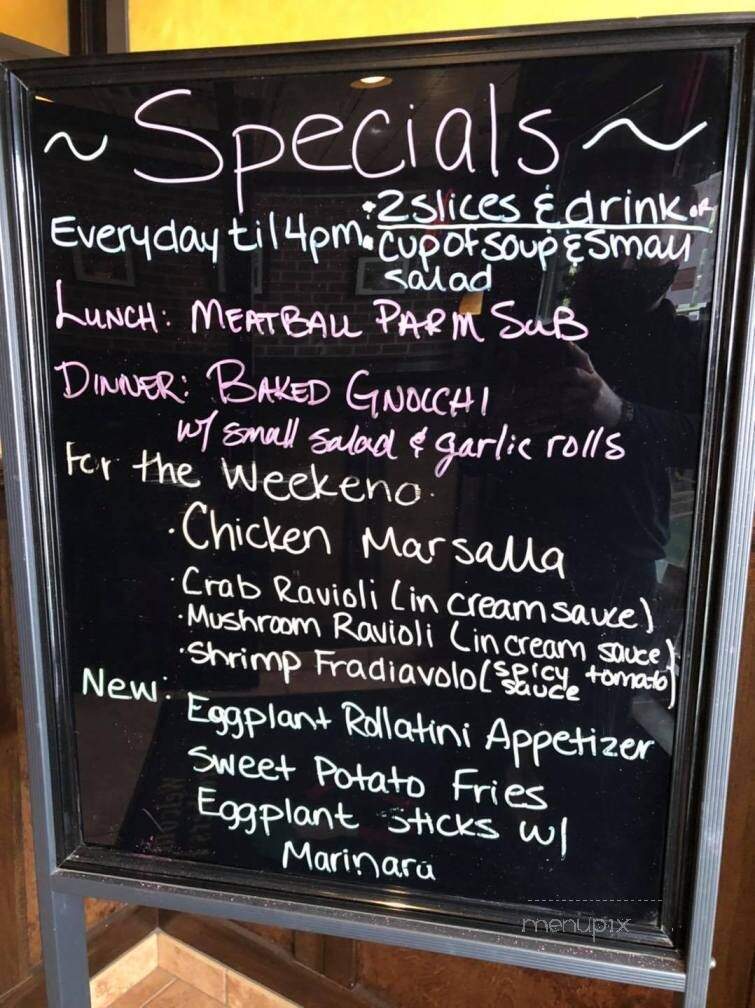 ~ Specials ~
Everyday til 4pm • 2 slices & drink OR
• cup of soup & small
salad
LUNCH: MEATBALL PARM SUB
DINNER: BAKED GNOCCHI
w/ small salad & garlic rolls
For the Weekend.
• Chicken Marsalla
• Crab Ravioli (in cream sauce)
• Mushroom Ravioli (in cream sauce)
• Shrimp Fradiavolo (spicy tomato
sauce)
New: Eggplant Rollatini Appetizer
Sweet Potato Fries
Eggplant Sticks w/
Marinara
menupix